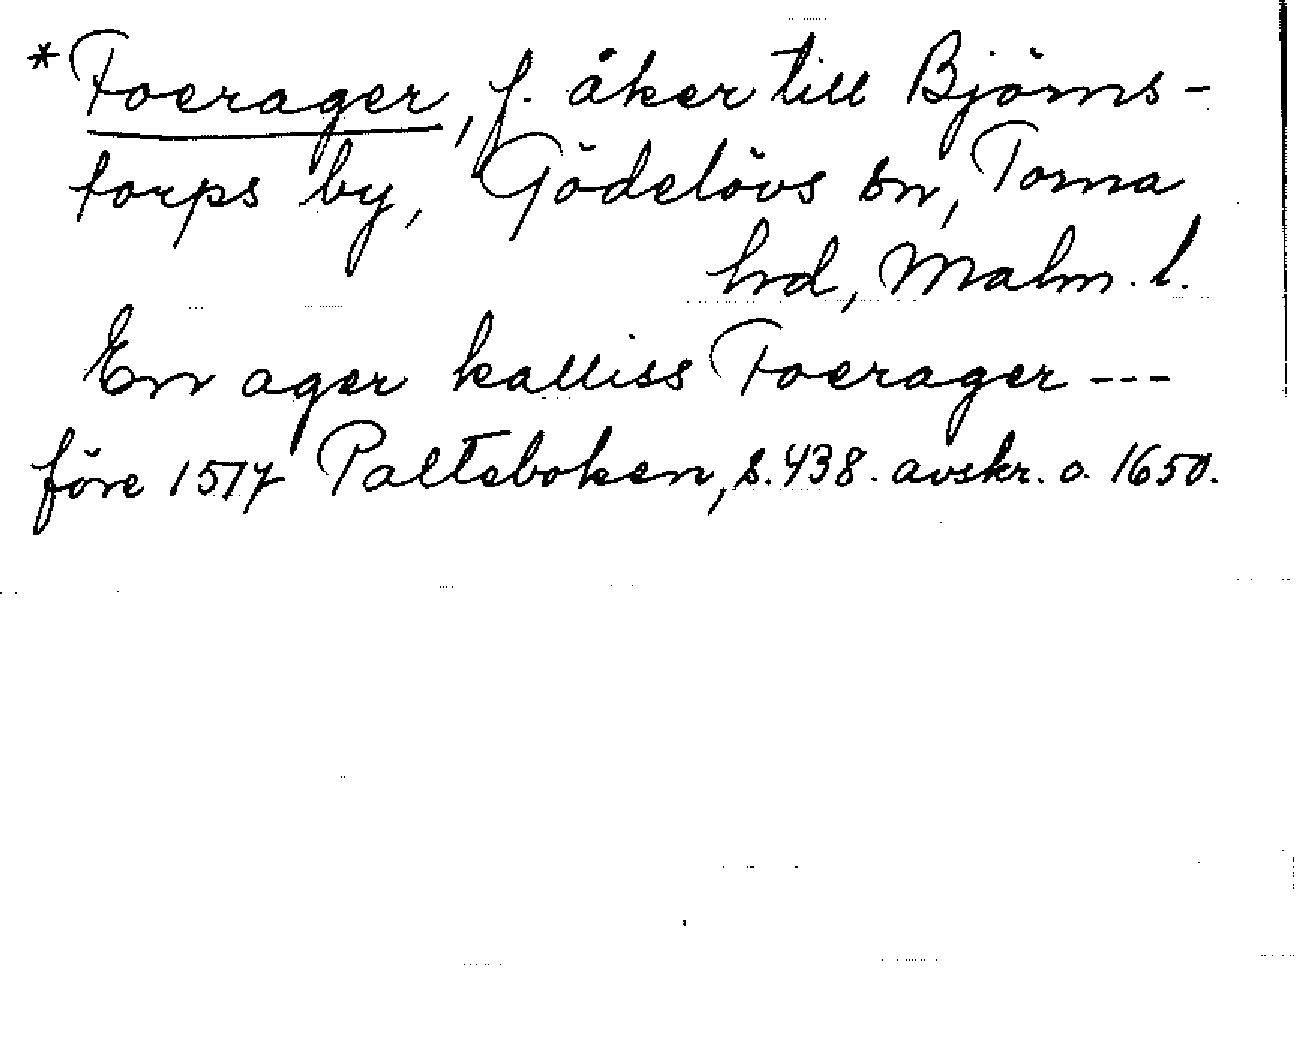 *Foerager, f. åker till Björns-
torps by, Gödelövs sn, Torna
hrd, Malm. l.
En ager kalliss Foerager ---
före 1517 Palteboken, s. 438. avskr. o. 1650.